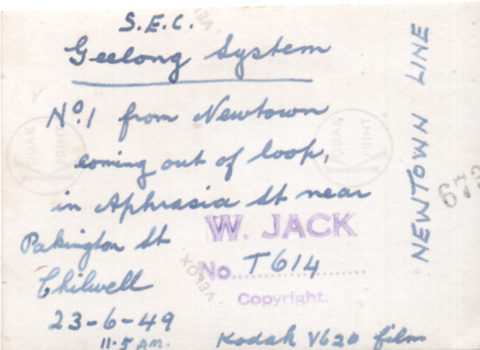 S.E.C.
Geelong System
No.1 from Newtown
coming out of loop,
in Aphrasia St near
Pakington St
Chilwell
23-6-49
11.5 AM.
Kodak V620 film
W. JACK
No. T614
Copyright.
NEWTOWN LINE
673
KODAK
PRINT
KODAK
PRINT
VELOX